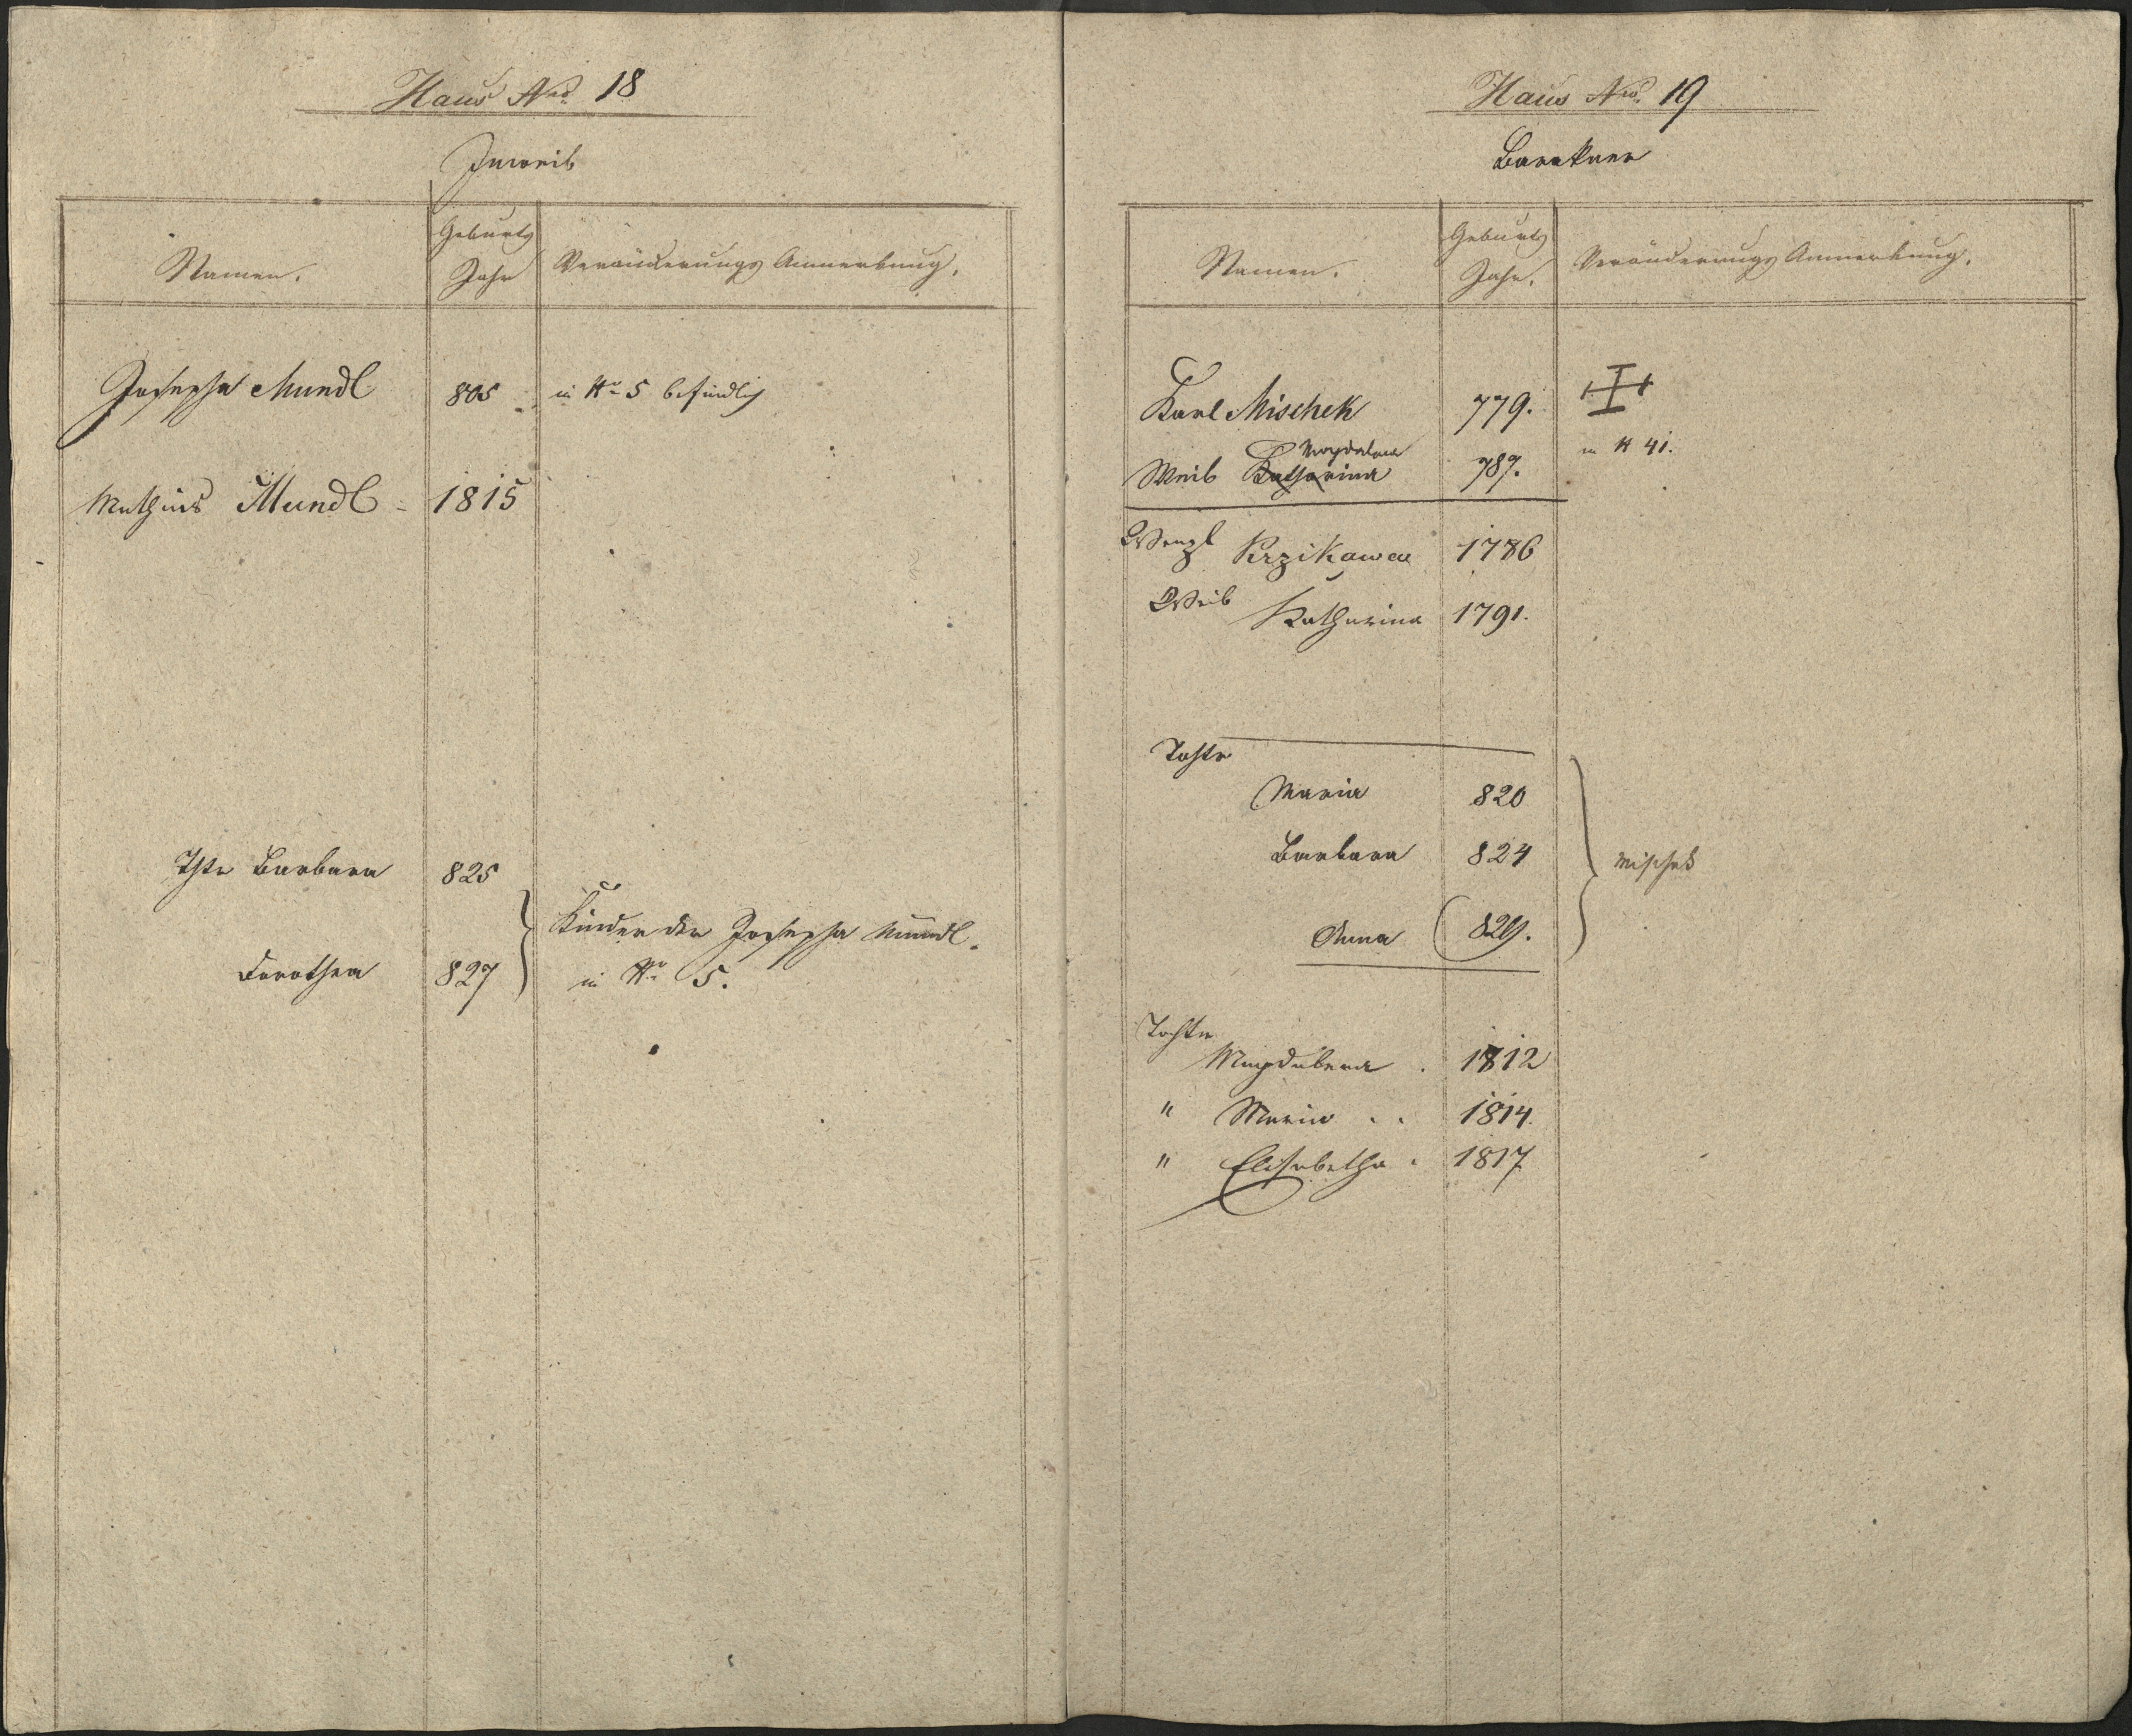 Haus Nro. 18
Inweib
Namen.
Geburts
Jahr
Veränderungs Anmerkung.
Josepha Mundl 805 in No 5 befindlich
Mathias Mundl 1815
Thtr Barbara 825
Kinder der Josepha Mundl.
Dorothea 827 in Nr 5.
Haus Nro. 19
Barakner
Namen.
Geburts
Jahr.
Veränderungs Anmerkung.
Karl Mischek 779.
Magdalena
Weib Katharina 787. in N 41.
Wenzl Krzikawa 1786
Weib Katharina 1791.
Tochtr
Maria 820
Barbara 824 Mischek
Anna 829.
Tochter
Magdalena . 1812
" Maria . . 1814.
" Elisabetha . 1817